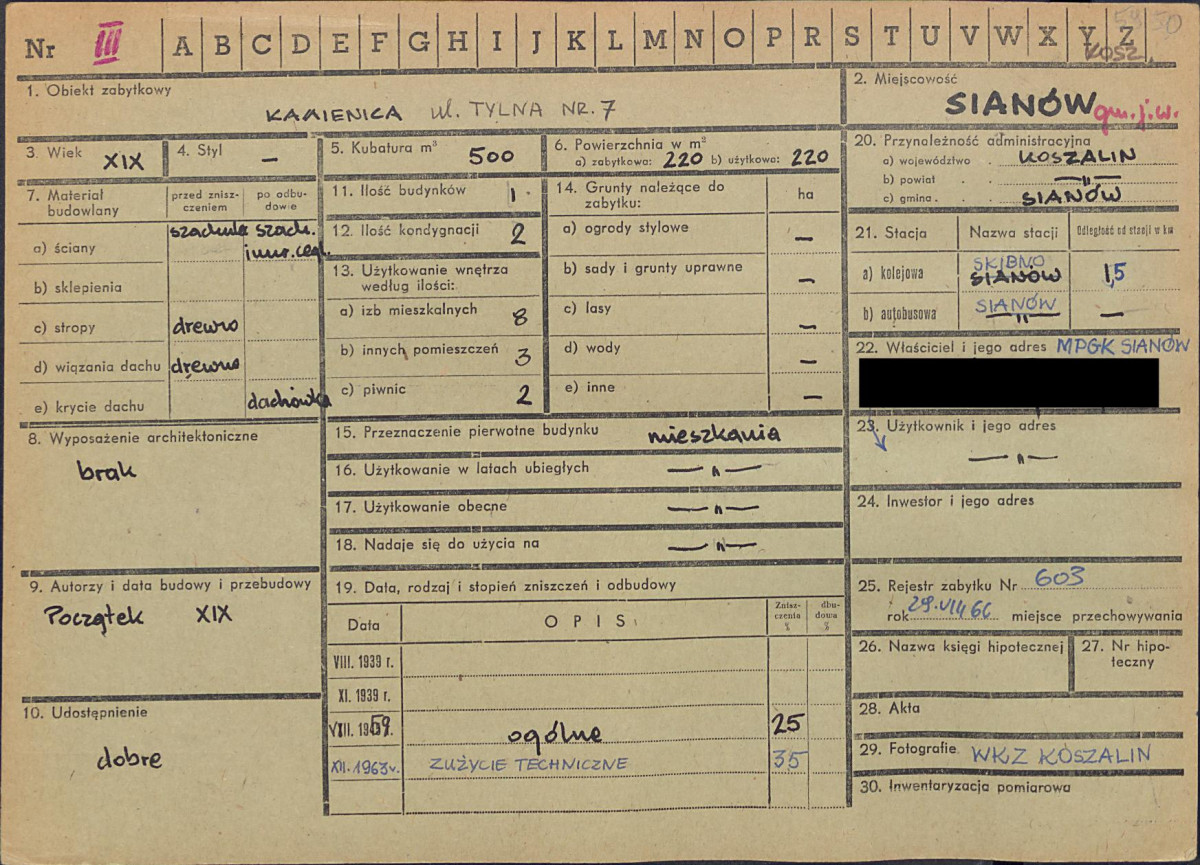 Nr III A B C D E F G H I J K L M N O P R S T U V W X Y Z
KOSZ.
1. Obiekt zabytkowy
KAMIENICA ul. TYLNA NR. 7
2. Miejscowość
SIANÓW gm. j.w.
3. Wiek XIX
4. Styl —
5. Kubatura m³ 500
6. Powierzchnia w m²
a) zabytkowa: 220 b) użytkowa: 220
7. Materiał budowlany
przed znisz-
czeniem
po odbu-
dowie
a) ściany szachulc szach.
mur. cegl.
b) sklepienia
c) stropy drewno
d) wiązania dachu drewno
e) krycie dachu dachówka
8. Wyposażenie architektoniczne
brak
9. Autorzy i data budowy i przebudowy
Początek XIX
10. Udostępnienie
dobre
11. Ilość budynków 1
12. Ilość kondygnacji 2
13. Użytkowanie wnętrza
według ilości:
a) izb mieszkalnych 8
b) innych pomieszczeń 3
c) piwnic 2
14. Grunty należące do
zabytku:
ha
a) ogrody stylowe —
b) sady i grunty uprawne —
c) lasy —
d) wody —
e) inne —
15. Przeznaczenie pierwotne budynku mieszkania
16. Użytkowanie w latach ubiegłych —„—
17. Użytkowanie obecne —„—
18. Nadaje się do użycia na —„—
19. Data, rodzaj i stopień zniszczeń i odbudowy
Data
OPIS
Znisz-
czenia
%
dbu-
dowa
%
VIII. 1939 r.
XI. 1939 r.
VIII. 1959. ogólne 25
XII. 1963 r. ZUŻYCIE TECHNICZNE 35
20. Przynależność administracyjna
a) województwo KOSZALIN
b) powiat —„—
c) gmina SIANÓW
21. Stacja
Nazwa stacji
Odległość od stacji w km
a) kolejowa SKIBNO
SIANÓW 1,5
b) autobusowa SIANÓW
—„— —
22. Właściciel i jego adres MPGK SIANÓW
23. Użytkownik i jego adres
—„—
24. Inwestor i jego adres
25. Rejestr zabytku Nr 603
rok 29.VIII 66 miejsce przechowywania
26. Nazwa księgi hipotecznej
27. Nr hipo-
teczny
28. Akta
29. Fotografie WKZ KOSZALIN
30. Inwentaryzacja pomiarowa